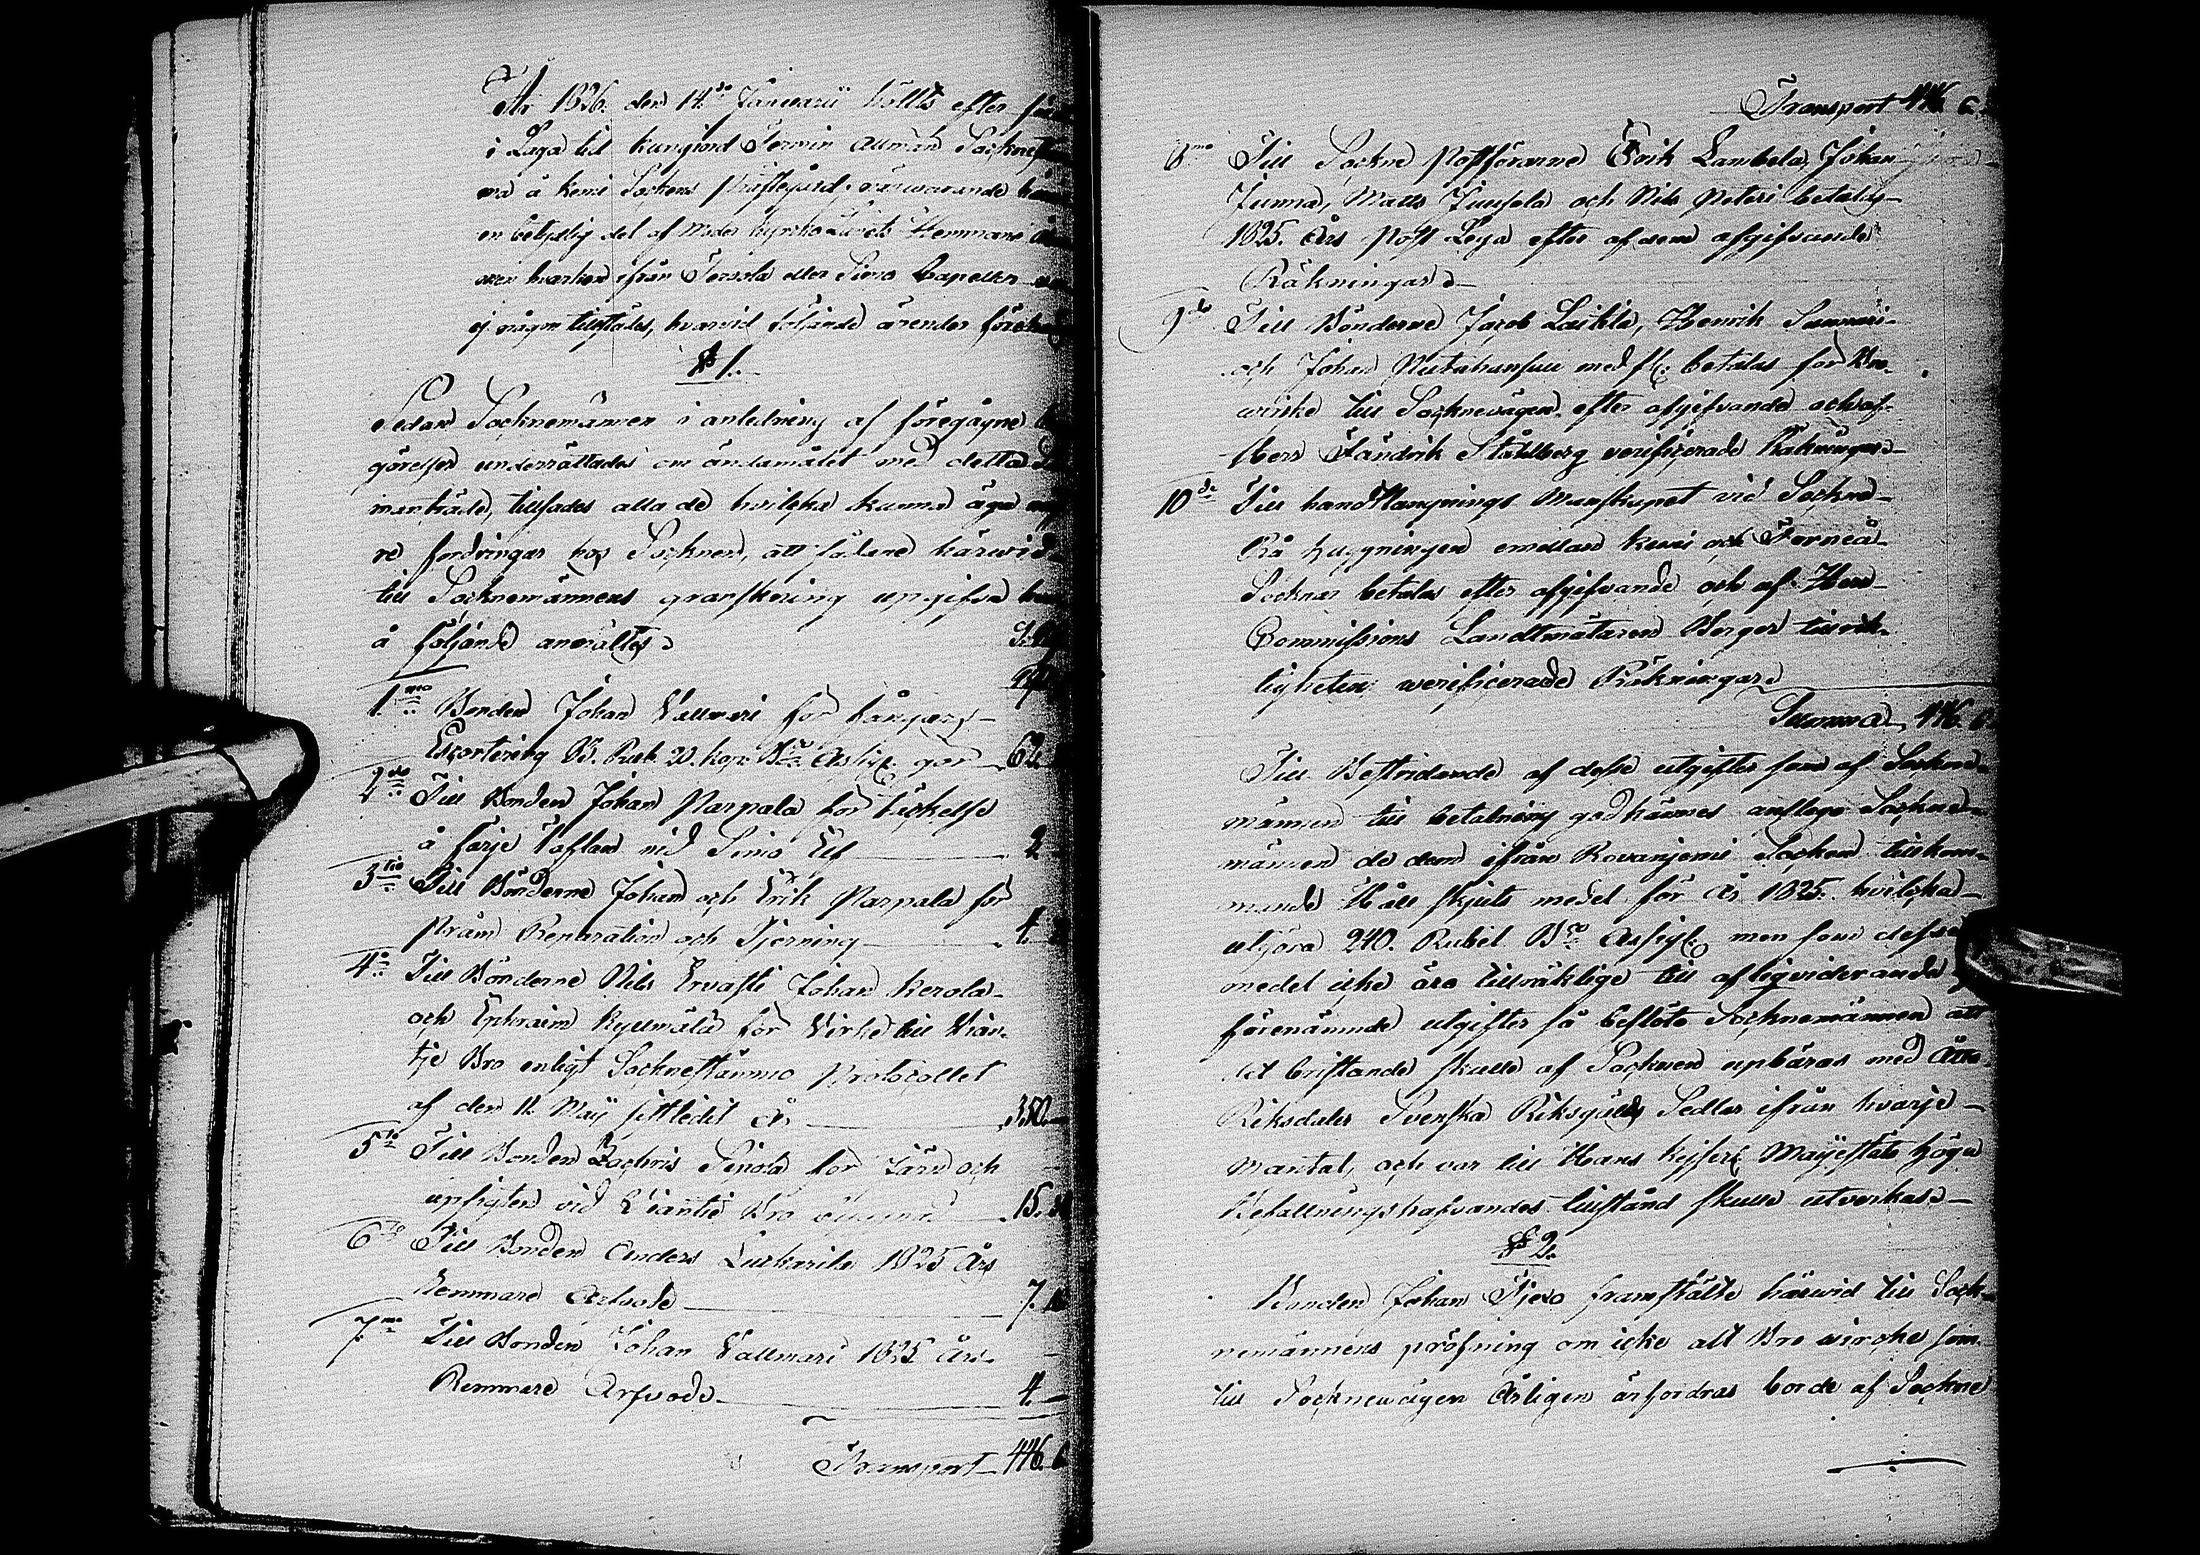 År 1826. den 14de Januarii hölls efter för
i Laga tid kungjord Termin allmän Sockne
ma å Kemi Sockens Prästegård, närvarande
en betydlig del af Moder Kyrko Härads Hemmans
men hvarken ifrån Tervola eller Simo Capeller
ej någon tillstädes, hvarvid följande ärender
§ 1.
Sedan Socknemännen i anledning af föregågne
görelser underrättades om ändamålet med detta
manträde, tillsades alla de hvilka kunna äga
re fordringar hos Socknen, att sådane härvid
till Socknemännens granskning upgifva
å följande anmältes
1mo Bonden Johan Vallmari för fångars
Escortering Rub. 20. kop. Bco Assig. gör 62
2do Till Bonden Johan Parpala för
å färje vid Simo Elf 2
3tio Till Bönderne Johan och Erik Parpala för
Pråm Reparation och Tjerning 4.
4o Till Bönderne Nils Ervasti Johan Kerola
och Ephraim Kyllmälä för Virke till Vian-
tje Bro enligt Sockne stämmo Protocollet
af den 11. Maij sistledit År 350.
5to Till Bonden Zachris Sipola för Järn och
upsigten vid Viantie Bro 15.
6to Till Bonden Anders 1825 Års
Remmare Arfvode 7.
7mo Till Bonden Johan Vallmari 1825 Års
Remmare Arfvode 4.
Transport 446. 6
Transport 446. 6.
8mo Till Sockne Postförarne Erik Lambela, Johan
Junna, Matts Juusola och Nils Peteri betalas
1825. Års Post Lega efter af dem afgifvande
Räkningar
9do Till Bönderne Jacob Laitila, Henrik Summari
och Johan med fl. betalas för Bro-
wirke till Socknevägen efter afgifvande och af
Herr Fändrik Ståhlberg verificerade Räkningar
10de Till handtlangnings Manskapet vid Sockne
Rå huggningen emellan Kemi och Torneå
Socknar betalas efter afgifvande och af Herr
Commissions Landtmätaren Berger till rik-
ligheten verificerade Räkningar
Summa 446. 6
Till Bestridande af desse utgifter som af Sockne-
männen till betalning godkännes anslogo Sockne-
männen de dem ifrån Rovanjemi Socken tillkom-
mande Håll skjuts medel för År 1825. hvilka
utgöra 240. Rubel Bco Assigt. men som desse
medel icke äro tillräklige till afliqviderande
förenämnde utgifter så beslöto Socknemännen att
det bristande skulle af Socknen upbäras med Åtta
Riksdaler Svenska Riksgälds Sedlar ifrån hvarje
mantal, och var till Hans Kejserl. Maijestäts höga
Befallningshafvandes tillstånd skulle utverkas
§ 2.
Bonden Johan Tjero framstälte härvid till Sock-
nemännens pröfning om icke alt Bro wirke som
till Socknevägen Årligen erfordras borde af Sockne